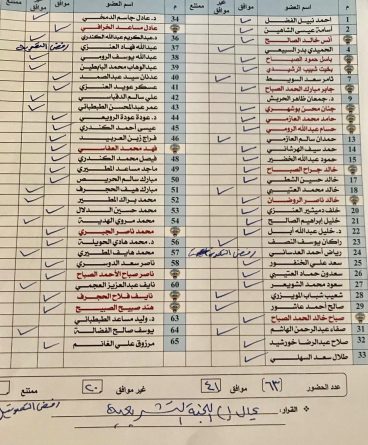 م اسم العضو موافق غير موافق ممتنع
1 أحمد نبيل الفضل
2 أسامة عيسى الشاهين
3 أنس خالد الصالح
4 الحميدي بدر السبيعي
5 باسل حمود الصباح
6 بخيت شبيب الرشيدي
7 ثامر سعد السويط
8 جابر مبارك الحمد الصباح
9 د. جمعان ظاهر الحربش
10 جنان محسن بوشهري
11 حامد محمد العازمي
12 حسام عبدالله الرومي
14 حمد سيف الهرشاني
15 حمود عبدالله الخضير
16 خالد جراح الصباح
17 خالد حسين الشطي
18 خالد محمد العتيبي
19 خالد ناصر الروضان
20 خلف دميثير العنزي
21 خليل إبراهيم الصالح
22 د. خليل عبدالله أبل
23 راكان يوسف النصف
24 رياض أحمد العدساني
25 سعد علي الخنفور
26 سعدون حماد العتيبي
28 سعود محمد الشويعر
29 شعيب شباب المويزري
29 صالح أحمد عاشور
30 صباح خالد الحمد الصباح
31 صفاء عبدالرحمن الهاشم
32 صلاح عبدالرضا خورشيد
33 طلال سعد السهلي
م اسم العضو موافق ممتنع
34 د. عادل جاسم الدمخي
عادل مساعد الخرافي
36 د. عبدالكريم عبدالله الكندري
37 عبدالله فهاد العنزي رفض التصويت
38 عبدالله يوسف الرومي
39 عبدالوهاب محمد البابطين
40 عدنان سيد عبدالصمد
عسكر عويد العنزي
42 علي سالم الدقباسي
41 عمر عبدالمحسن الطبطبائي
44 د. عودة عودة الرويعي
45 عيسى أحمد الكندري
46 فراج زبن العربيد
فهد محمد العفاسي
48 فيصل محمد الكندري
49 ماجد مساعد المطيري
50 مبارك سالم الحريص
51 مبارك هيف الحجرف
52 محمد براك المطير
53 محمد حسين الدلال
54 محمد مروي الهدية
محمد ناصر الجبري
56 د. محمد هادي الحويلة
57 محمد هايف المطيري
58 ناصر سعد الدوسري
ناصر صباح الأحمد الصباح
60 نايف عبدالعزيز العجمي
نايف فلاح الحجرف
هند صبيح الصبيح
63 د. وليد مساعد الطبطبائي
64 يوسف صالح الفضالة
65 مرزوق علي الغانم
عدد الحضور ٦٣ موافق ٤١ غير موافق ٢٠ ممتنع
القرار: